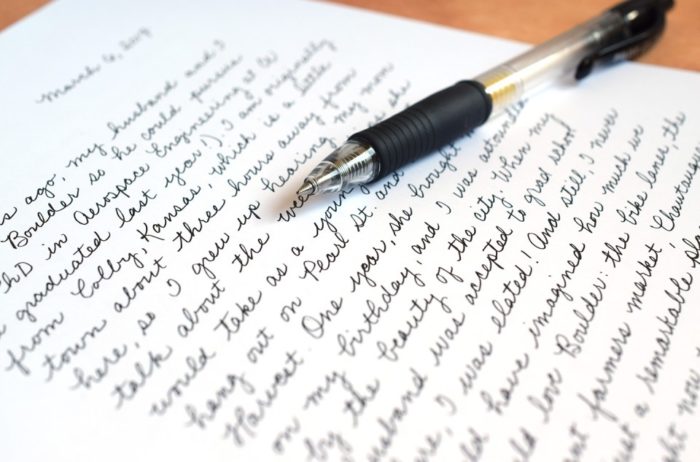 March 6, 2019
s ago, my husband and I
Boulder so he could pursue
PhD in Aerospace Engineering at CU
graduated last year!). I am originally
from Colby, Kansas, which is a little
town about three hours away from
here, so I grew up hearing my mom
talk about the
would take as a young
hang out on Pearl St. and
Harvest. One year, she brought
on my birthday, and I was astounded
by the beauty of the city. When my
husband was accepted to grad school
I was elated! And still, I never
have imagined how much we
love Boulder: the bike lanes, the
farmers market, Chautau
just a remarkable